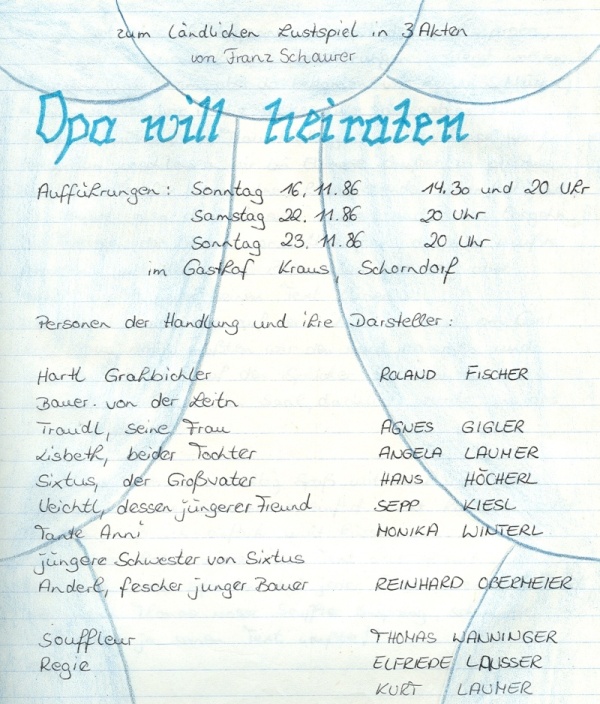 zum Ländlichen Lustspiel in 3 Akten
von Franz Schaurer
Opa will heiraten
Aufführungen: Sonntag 16.11.86 14.30 und 20 Uhr
Samstag 22.11.86 20 Uhr
Sonntag 23.11.86 20 Uhr
im Gasthof Kraus, Schorndorf
Personen der Handlung und ihre Darsteller:
Hartl Graßbichler ROLAND FISCHER
Bauer von der Leitn
Traudl, seine Frau AGNES GIGLER
Lisbeth, beider Tochter ANGELA LAUMER
Sixtus, der Großvater HANS HÖCHERL
Veichtl, dessen jüngerer Freund SEPP KIESL
Tante Anni MONIKA WINTERL
jüngere Schwester von Sixtus
Anderl, fescher junger Bauer REINHARD OBERMEIER
Souffleur THOMAS WANNINGER
Regie ELFRIEDE LAUSSER
KURT LAUMER